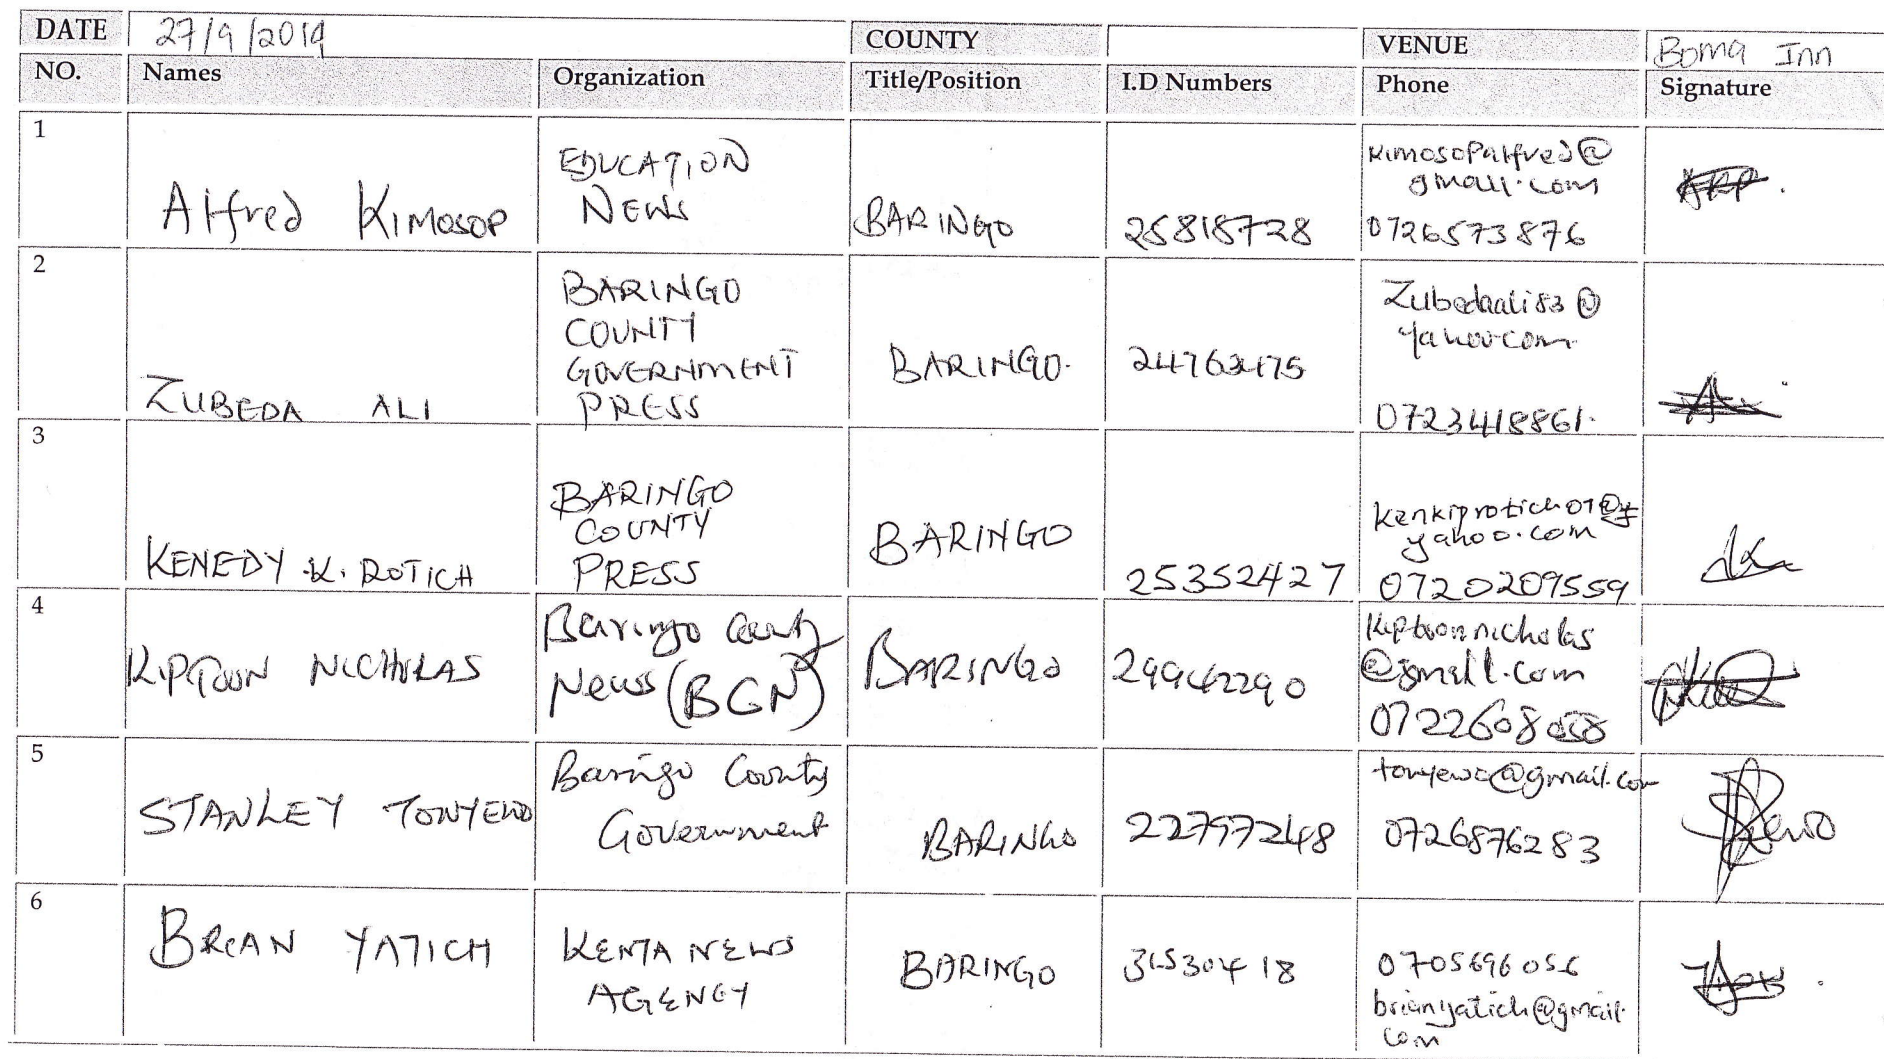 DATE 27/9/2019 COUNTY VENUE Boma Inn
NO. Names Organization Title/Position I.D Numbers Phone Signature
1
Alfred Kimosop
EDUCATION
NEWS
BARINGO
25818728
kimosopalfred@
gmail.com
0726573876
2
ZUBEDA ALI
BARINGO
COUNTY
GOVERNMENT
PRESS
BARINGO.
24763175
Zubedaali83@
yahoo.com
0723418861.
3
KENEDY K. ROTICH
BARINGO
COUNTY
PRESS
BARINGO
25352427
Kenkiprotich07@
yahoo.com
0720209559
4
KIPTOON NICHOLAS
Baringo County
News (BGN)
BARINGO
29942290
Kiptoonnicholas
@gmail.com
0722608058
5
STANLEY TONYEWO
Baringo County
Government
BARINGO
22797248
tonyewo@gmail.com
0726876283
6
BRIAN YATICH
KENYA NEWS
AGENCY
BARINGO
31530418
0705696056
brianyatich@gmail.
com